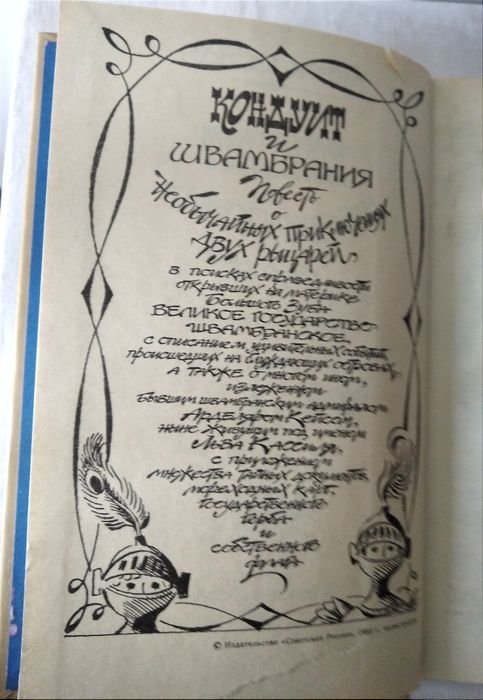 КОНДУИТ
и
ШВАМБРАНИЯ
Повесть
о
Необычайных приключениях
двух рыцарей,
в поисках справедливости
открывших на материке
Большого Зуба
ВЕЛИКОЕ ГОСУДАРСТВО
ШВАМБРАНСКОЕ,
с описанием удивительных событий,
происшедших на блуждающих островах,
а также о многом ином,
изложенном
бывшим швамбранским адмиралом
Арделяром Кейсом,
ныне живущим под именем
Льва Кассиля,
с приложением
множества тайных документов,
мореходных карт,
государственного
герба
и
собственного
флага
© Издательство «Советская Россия»,